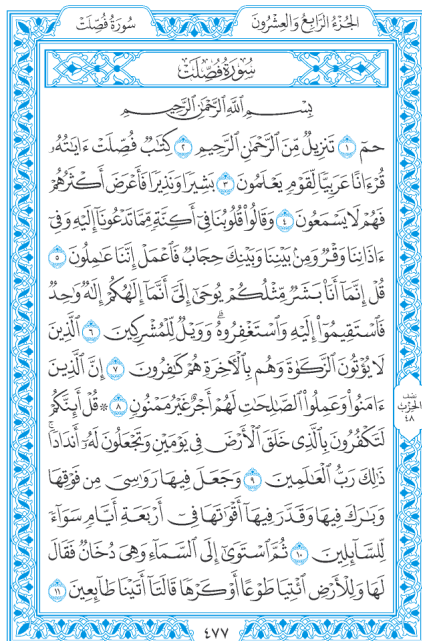 الجُزْءُ الرَّابِعُ وَالعِشْرُونَ
سُورَةُ فُصِّلَتْ
سُورَةُ فُصِّلَتْ
بِسْمِ ٱللَّهِ ٱلرَّحْمَٰنِ ٱلرَّحِيمِ
حمٓ ١ تَنزِيلٌ مِّنَ ٱلرَّحْمَٰنِ ٱلرَّحِيمِ ٢ كِتَٰبٌ فُصِّلَتْ ءَايَٰتُهُۥ
قُرْءَانًا عَرَبِيًّا لِّقَوْمٍ يَعْلَمُونَ ٣ بَشِيرًا وَنَذِيرًا فَأَعْرَضَ أَكْثَرُهُمْ
فَهُمْ لَا يَسْمَعُونَ ٤ وَقَالُوا۟ قُلُوبُنَا فِىٓ أَكِنَّةٍ مِّمَّا تَدْعُونَآ إِلَيْهِ وَفِىٓ
ءَاذَانِنَا وَقْرٌ وَمِنۢ بَيْنِنَا وَبَيْنِكَ حِجَابٌ فَٱعْمَلْ إِنَّنَا عَٰمِلُونَ ٥
قُلْ إِنَّمَآ أَنَا۠ بَشَرٌ مِّثْلُكُمْ يُوحَىٰٓ إِلَىَّ أَنَّمَآ إِلَٰهُكُمْ إِلَٰهٌ وَٰحِدٌ
فَٱسْتَقِيمُوٓا۟ إِلَيْهِ وَٱسْتَغْفِرُوهُ ۗ وَوَيْلٌ لِّلْمُشْرِكِينَ ٦ ٱلَّذِينَ
لَا يُؤْتُونَ ٱلزَّكَوٰةَ وَهُم بِٱلْءَاخِرَةِ هُمْ كَٰفِرُونَ ٧ إِنَّ ٱلَّذِينَ
ءَامَنُوا۟ وَعَمِلُوا۟ ٱلصَّٰلِحَٰتِ لَهُمْ أَجْرٌ غَيْرُ مَمْنُونٍ ٨ ۞ قُلْ أَئِنَّكُمْ
نِصْف
الحِزْب
٤٨
لَتَكْفُرُونَ بِٱلَّذِى خَلَقَ ٱلْأَرْضَ فِى يَوْمَيْنِ وَتَجْعَلُونَ لَهُۥٓ أَندَادًا ۚ
ذَٰلِكَ رَبُّ ٱلْعَٰلَمِينَ ٩ وَجَعَلَ فِيهَا رَوَٰسِىَ مِن فَوْقِهَا
وَبَٰرَكَ فِيهَا وَقَدَّرَ فِيهَآ أَقْوَٰتَهَا فِىٓ أَرْبَعَةِ أَيَّامٍ سَوَآءً
لِّلسَّآئِلِينَ ١٠ ثُمَّ ٱسْتَوَىٰٓ إِلَى ٱلسَّمَآءِ وَهِىَ دُخَانٌ فَقَالَ
لَهَا وَلِلْأَرْضِ ٱئْتِيَا طَوْعًا أَوْ كَرْهًا قَالَتَآ أَتَيْنَا طَآئِعِينَ ١١
٤٧٧